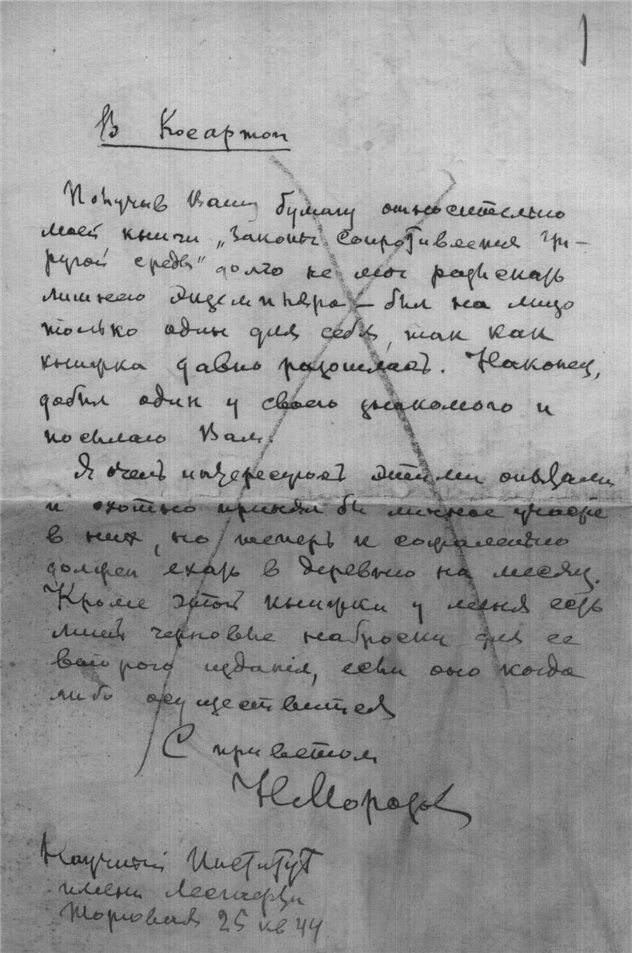 1
В Косартоп
Получив Вашу бумагу относительно
моей книги „Законы сопротивления упру-
гой среды" долго не мог разыскать
лишнего экземпляра – был на лицо
только один для себя, так как
книжка давно разошлась. Наконец,
добыл один у своего знакомого и
посылаю Вам.
Я очень интересуюсь этими опытами
и охотно принял бы личное участие
в них, но теперь к сожалению
должен ехать в деревню на месяц.
Кроме этой книжки у меня есть
лишь черновые наброски для ее
второго издания, если оно когда
либо осуществится
С приветом
Н Морозов
Научный Институт
имени Лесгафта
Торговая 25 кв 44